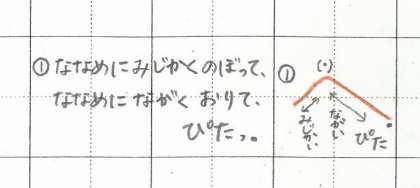 ①ななめにみじかくのぼって、
ななめにながくおりて、
ぴたっ。
①
(・)
みじかい
ながい
ぴた